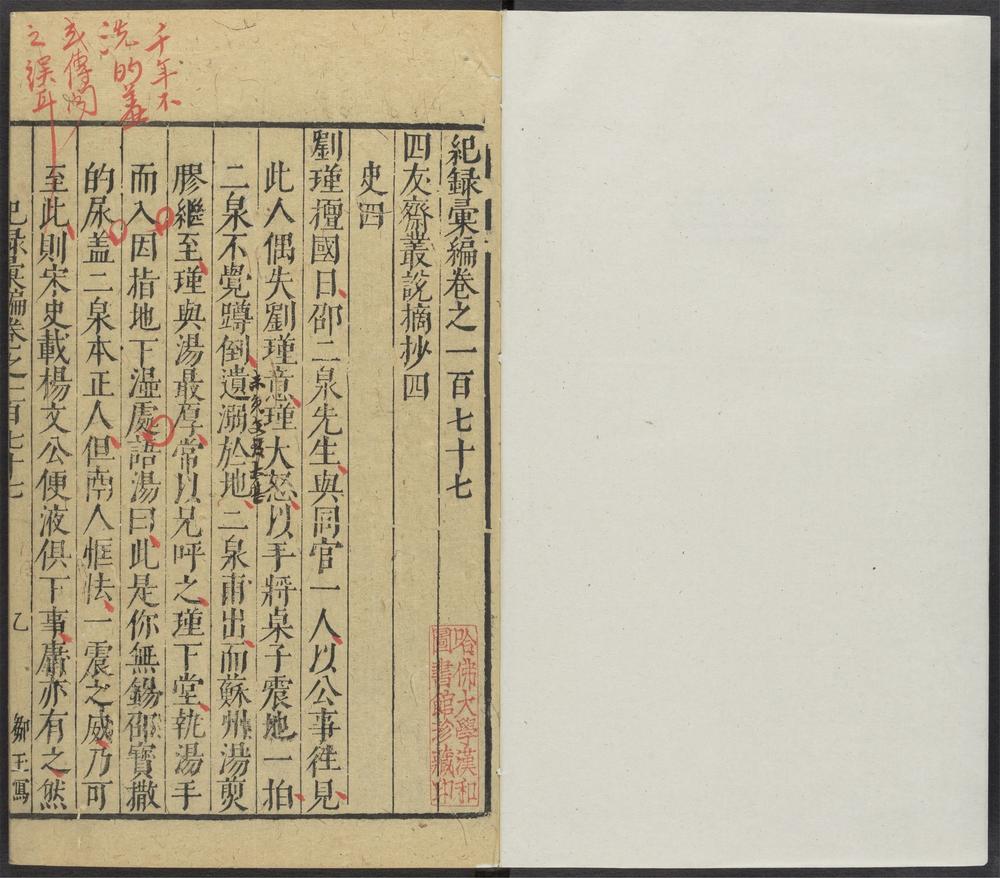 紀録彙編卷之一百七十七
四友齋叢說摘抄四
史四
劉瑾擅國日邵二泉先生與同官一人以公事徃見
此人偶失劉瑾意瑾大怒以手將桌子震地一拍
二泉不覺蹲倒遺溺於地二泉甫出而蘇州湯煎
膠繼至瑾與湯最厚常以兄呼之瑾下堂執湯手
而入因指地下濕處語湯曰此是你無錫邵寶撒
的尿盖二泉本正人但南人恇怯一震之威乃可
至此則宋史載楊文公便液俱下事庸亦有之然
紀録彙編卷之一百七十七
乙
鄉王寫
千年不
洗的羞
或傳聞
之誤耳
哈佛大學漢和
圖書館珍藏印